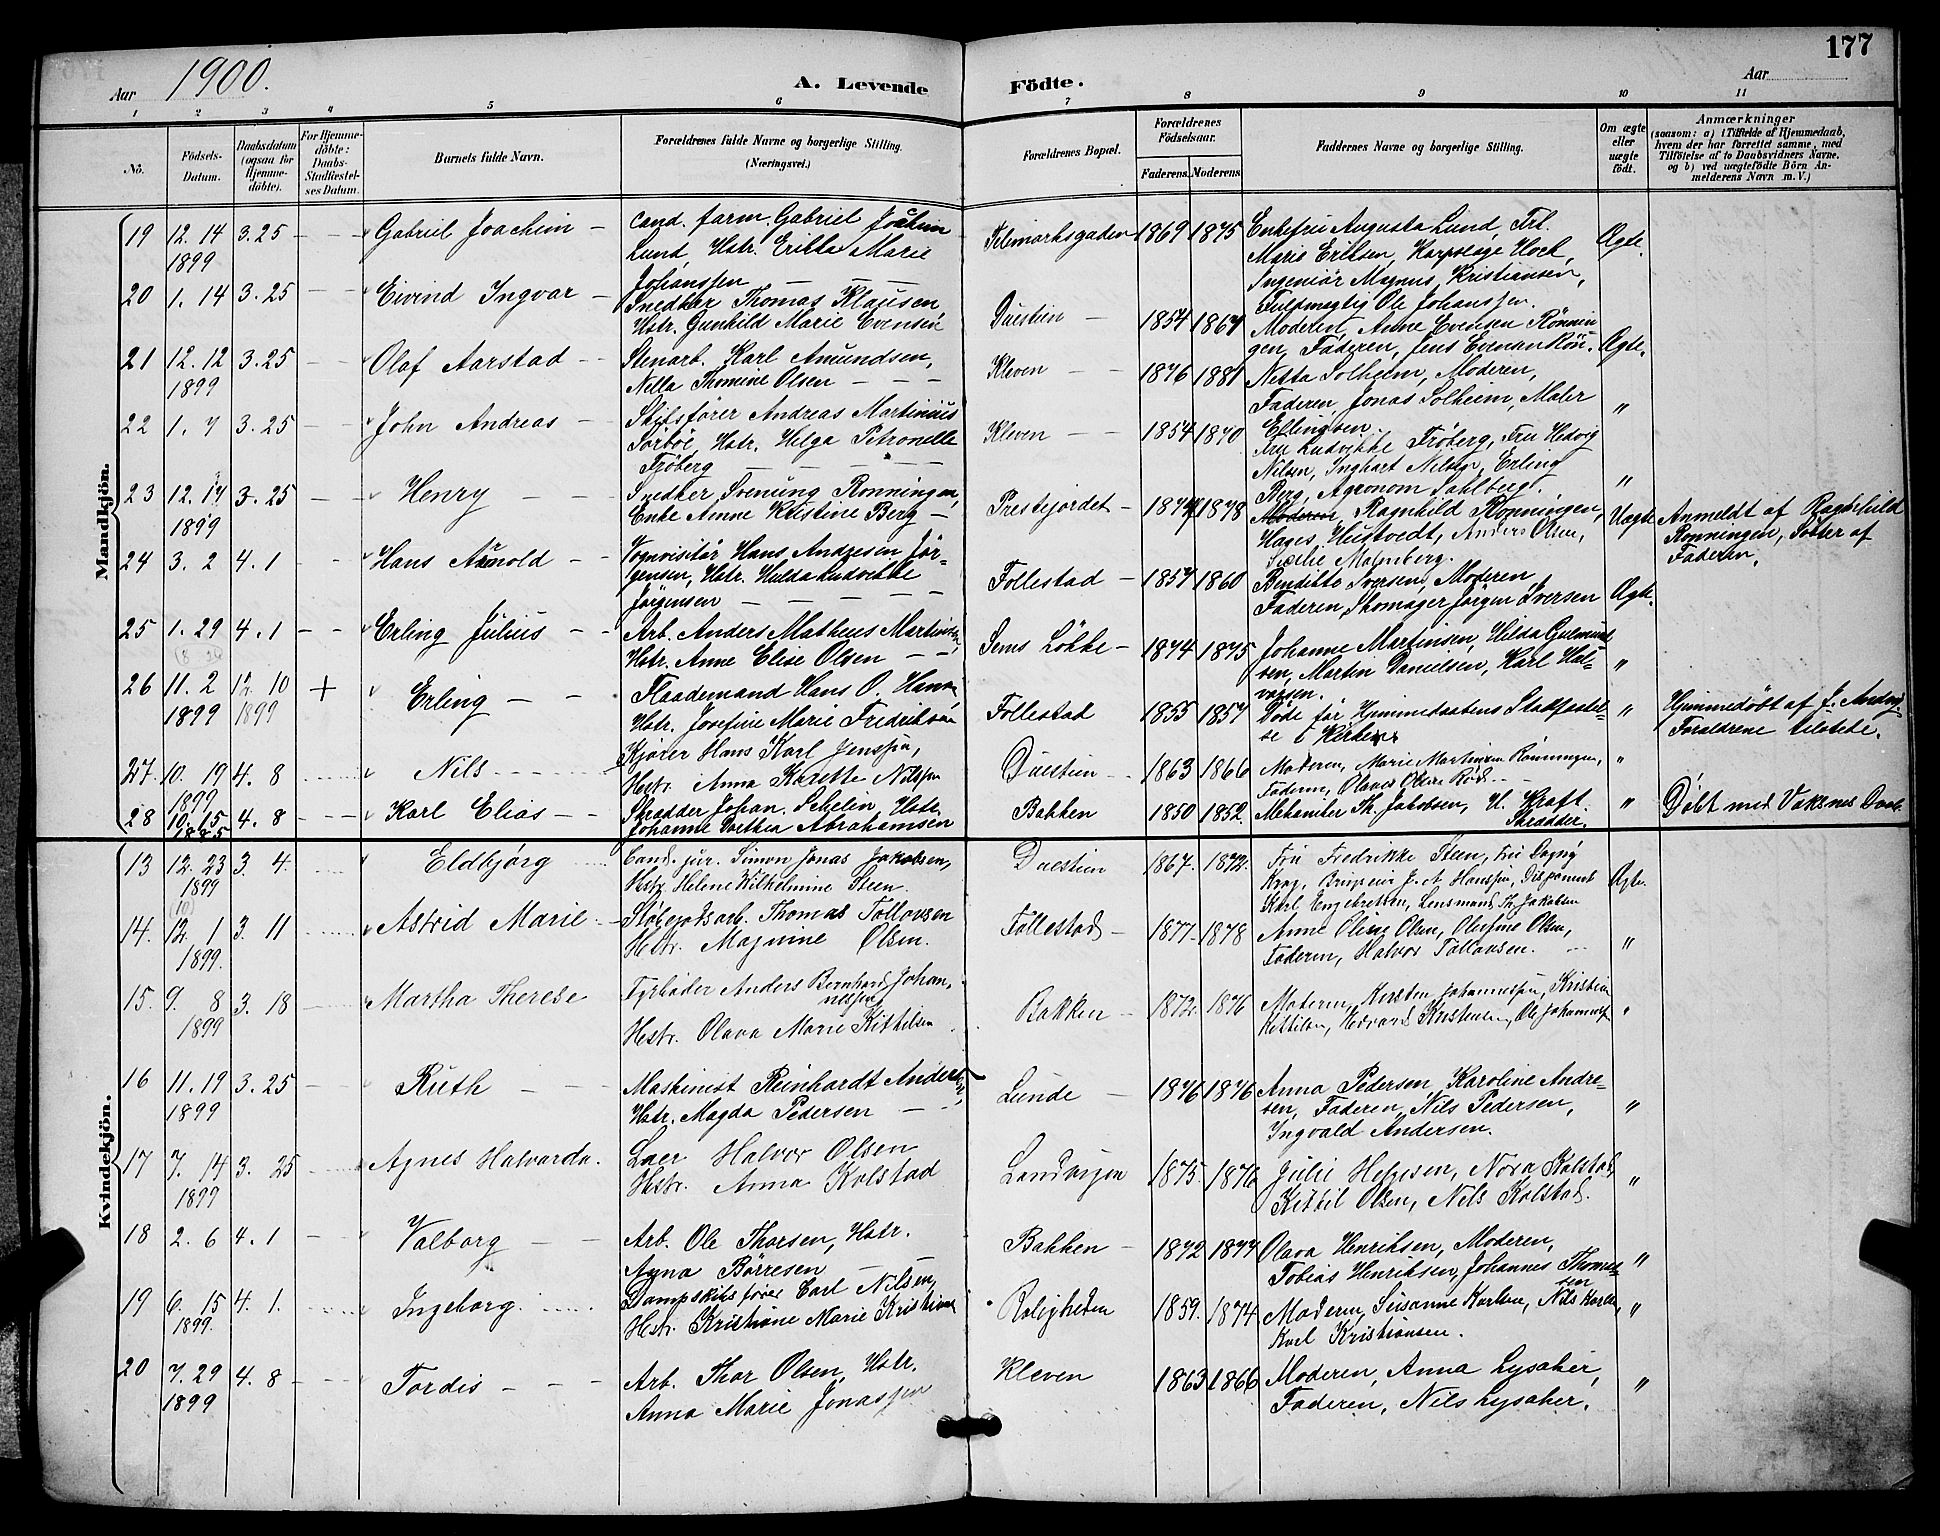 177
Aar 1900. A. Levende Födte. Aar
1 2 3 4 5 6 7 8 9 10 11
No. Födsels-Datum. Daabsdatum (ogsaa for Hjemme-döbte). For Hjemme-döbte: Daabs-Stadfæstel-ses Datum. Barnets fulde Navn. Forældrenes fulde Navne og borgerlige Stilling. (Næringsvei.) Forældrenes Bopæl. Forældrenes Födselsaar. Faderens. Moderens. Faddernes Navne og borgerlige Stilling. Om ægte eller uægte födt. Anmærkninger (saasom: a) i Tilfælde af Hjemmedaab, hvem der har forrettet samme, med Tilföielse af to Daabsvidners Navne, og b) ved uægtefödte Börn An-melderens Navn m. V.)
Mandkjön.
19 12. 14 1899 3. 25 – – Gabriel Joachim – cand. farm. Gabriel Joachim
Lund, Hstr. Erikka Marie
Johanssen – –
Telemarksgaden 1869 1875 Enkefru Augusta Lund, Frk.
Maris Eriksen, Karpslage Hoch,
Ingeniør Magnus Kristiansen,
Fuldmægtig Ole Johanssen.
Ægte.
20 1. 14 3. 25 – – Eivind Ingvar – Snedker Thomas Klausen
Hstr. Gunhild Marie Evensen
Duestien – 1854 1864 Moderen, Anne Evensen Rønnin
gen, Faderen, Jens Evensen Røn.
Ægte.
21 12. 12 1899 3. 25 – – Olaf Aarstad – – Stenarb. Karl Amundsen,
Nella Thomine Olsen – – –
Kleven – – 1876 1881 Netta Solheim, Moderen,
Faderen, Jonas Solheim, Maler
Ellingsen.
"
22 1. 7 3. 25 – – John Andreas – Skibsfører Andreas Martinius
Sorbøe, Hstr. Helga Petronelle
Frøberg – – – –
Kleven – – 1854 1870 Fru Ludvikke Frøberg, Fru Hedvig
Nilsen, Inghart Nilsen, Erling
Berg, Agronom Sahlberg.
"
23 12. 14 1899 3. 25 – – Henry – – Snedker Svenung Rønningen,
Enke Anne Kristine Berg –
Prestejordet – 1874 1878 Moderen Ragnhild Rønningen,
Hages, Hustvedt, Anders Olsen,
Malmberg.
Uægte Anmeldt af Ragnhild
Rønningen, Søster af
Faderen.
24 3. 2 4. 1 – – Hans Arnold – Vognvisitør Hans Andresen Jør-
gensen, Hstr. Hulda Ludvikke
Jørgensen – – – – –
Follestad – 1857 1860 Benditte Iversen, Moderen
Faderen, Skomager Jørgen Iversen
Ægte.
25 1. 29 4. 1 – – Erling Julius – – Arb. Anders Matheus Martinsen,
Hstr. Anne Elise Olsen – –
Sems Løkke – 1874 1875 Johanne Martinsen, Hilda Gulmund
sen, Martin Danielsen, Karl Hal-
vorsen.
"
26 11. 2 1899 12. 10 1899 + Erling – – Flaademand Hans O. Hansen
Hstr. Josefine Marie Fredriksen
Follestad 1855 1857 Døde før Hjemmedaabens Stadfæstel-
se i Kirken
" Hjemmedøbt af J. Andvig.
Forældrene tilstede.
27. 10. 19 1899 4. 8 Nils Kjører Hans Karl Jenssen,
Hstr. Anna Karette Nilssen
Duestien – – 1863 1866 Moderen, Marie Martinsen Rønningen,
Faderen, Olaves Olsen Rød – –
"
28 10. 15 1885 4. 8 – – – Karl Elias – – Skrædder Johan Schelin, Hstr.
Johanne Dorthea Abrahamsen
Bakken 1850 1852. Mekaniker Th. Jakobsen, H. Kraft.
Skrædder.
" Døbt med Voksnes Daab
Kvindekjön.
13 12. 23 1899 3. 4. Eldbjørg Cand. jur. Simon Jonas Jakobsen,
Hstr. Helene Wilhelmine Steen.
Duestien 1867. 1872. Fru Fredrikke Steen, Fru Dagny
Krag, Brugseier J. A. Hanssen, Disponent
Karl Engebretsen, Lensmand Th. Jakobsen
Ægte.
14. 12. 1 1899. 3. 11 Astrid Marie – Støbegodsarb. Thomas Tollovsen
Hstr. Magnine Olsen.
Follestad – 1877. 1878 Anne Oline Olsen, Olufine Olsen,
Faderen, Halvor Tollovsen.
"
15. 9. 8 1899 3. 18 Martha Therese Fyrbøder Anders Bernhard Johan-
nessen
Hstr. Olava Marie Kittilsen
Bakken – 1872. 1876 Moderen, Kirsten Johannessen, Kristine
Kittilsen, Edvard Kristensen, Ole Johannessen
"
16 11. 19 1899 3. 25 – – Ruth – – Maskinist Reinhardt Andersen,
Hstr. Magda Pedersen – –
Lunde – 1876 1876 Anna Pedersen, Karoline Andre-
sen, Faderen, Nils Pedersen,
Ingvald Andersen.
"
17 7. 14 1899 3. 25 Agnes Halvarda. Lær Halvor Olsen
Hstr. Anna Kolstad
Landvigen 1875. 1876 Julie Helgesen, Nora Kolstad,
Kittil Olsen, Nils Kolstad.
"
18 2. 6 4. 1 – – Valborg – – Arb. Ole Thorsen, Hstr.
Anna Børresen – –
Bakken – 1872 1877 Olava Henriksen, Moderen,
Tobias Henriksen, Johannes Thomas-
sen
"
19 6. 15 1899. 4. 1. Ingeborg. Dampskibsfører Carl Nilsen,
Hstr. Kristiane Marie Kristiansen
Roligheden 1859. 1874 Moderen, Susanne Karlsen, Nils Karlsen,
Karl Kristiansen.
"
20 7. 29 1899 4. 8 – – – Tordis – – – Arb. Thor Olsen, Hstr.
Anna Marie Jonassen
Kleven 1863 1866 Moderen, Anna Lysaker,
Faderen, Nils Lysaker.
"